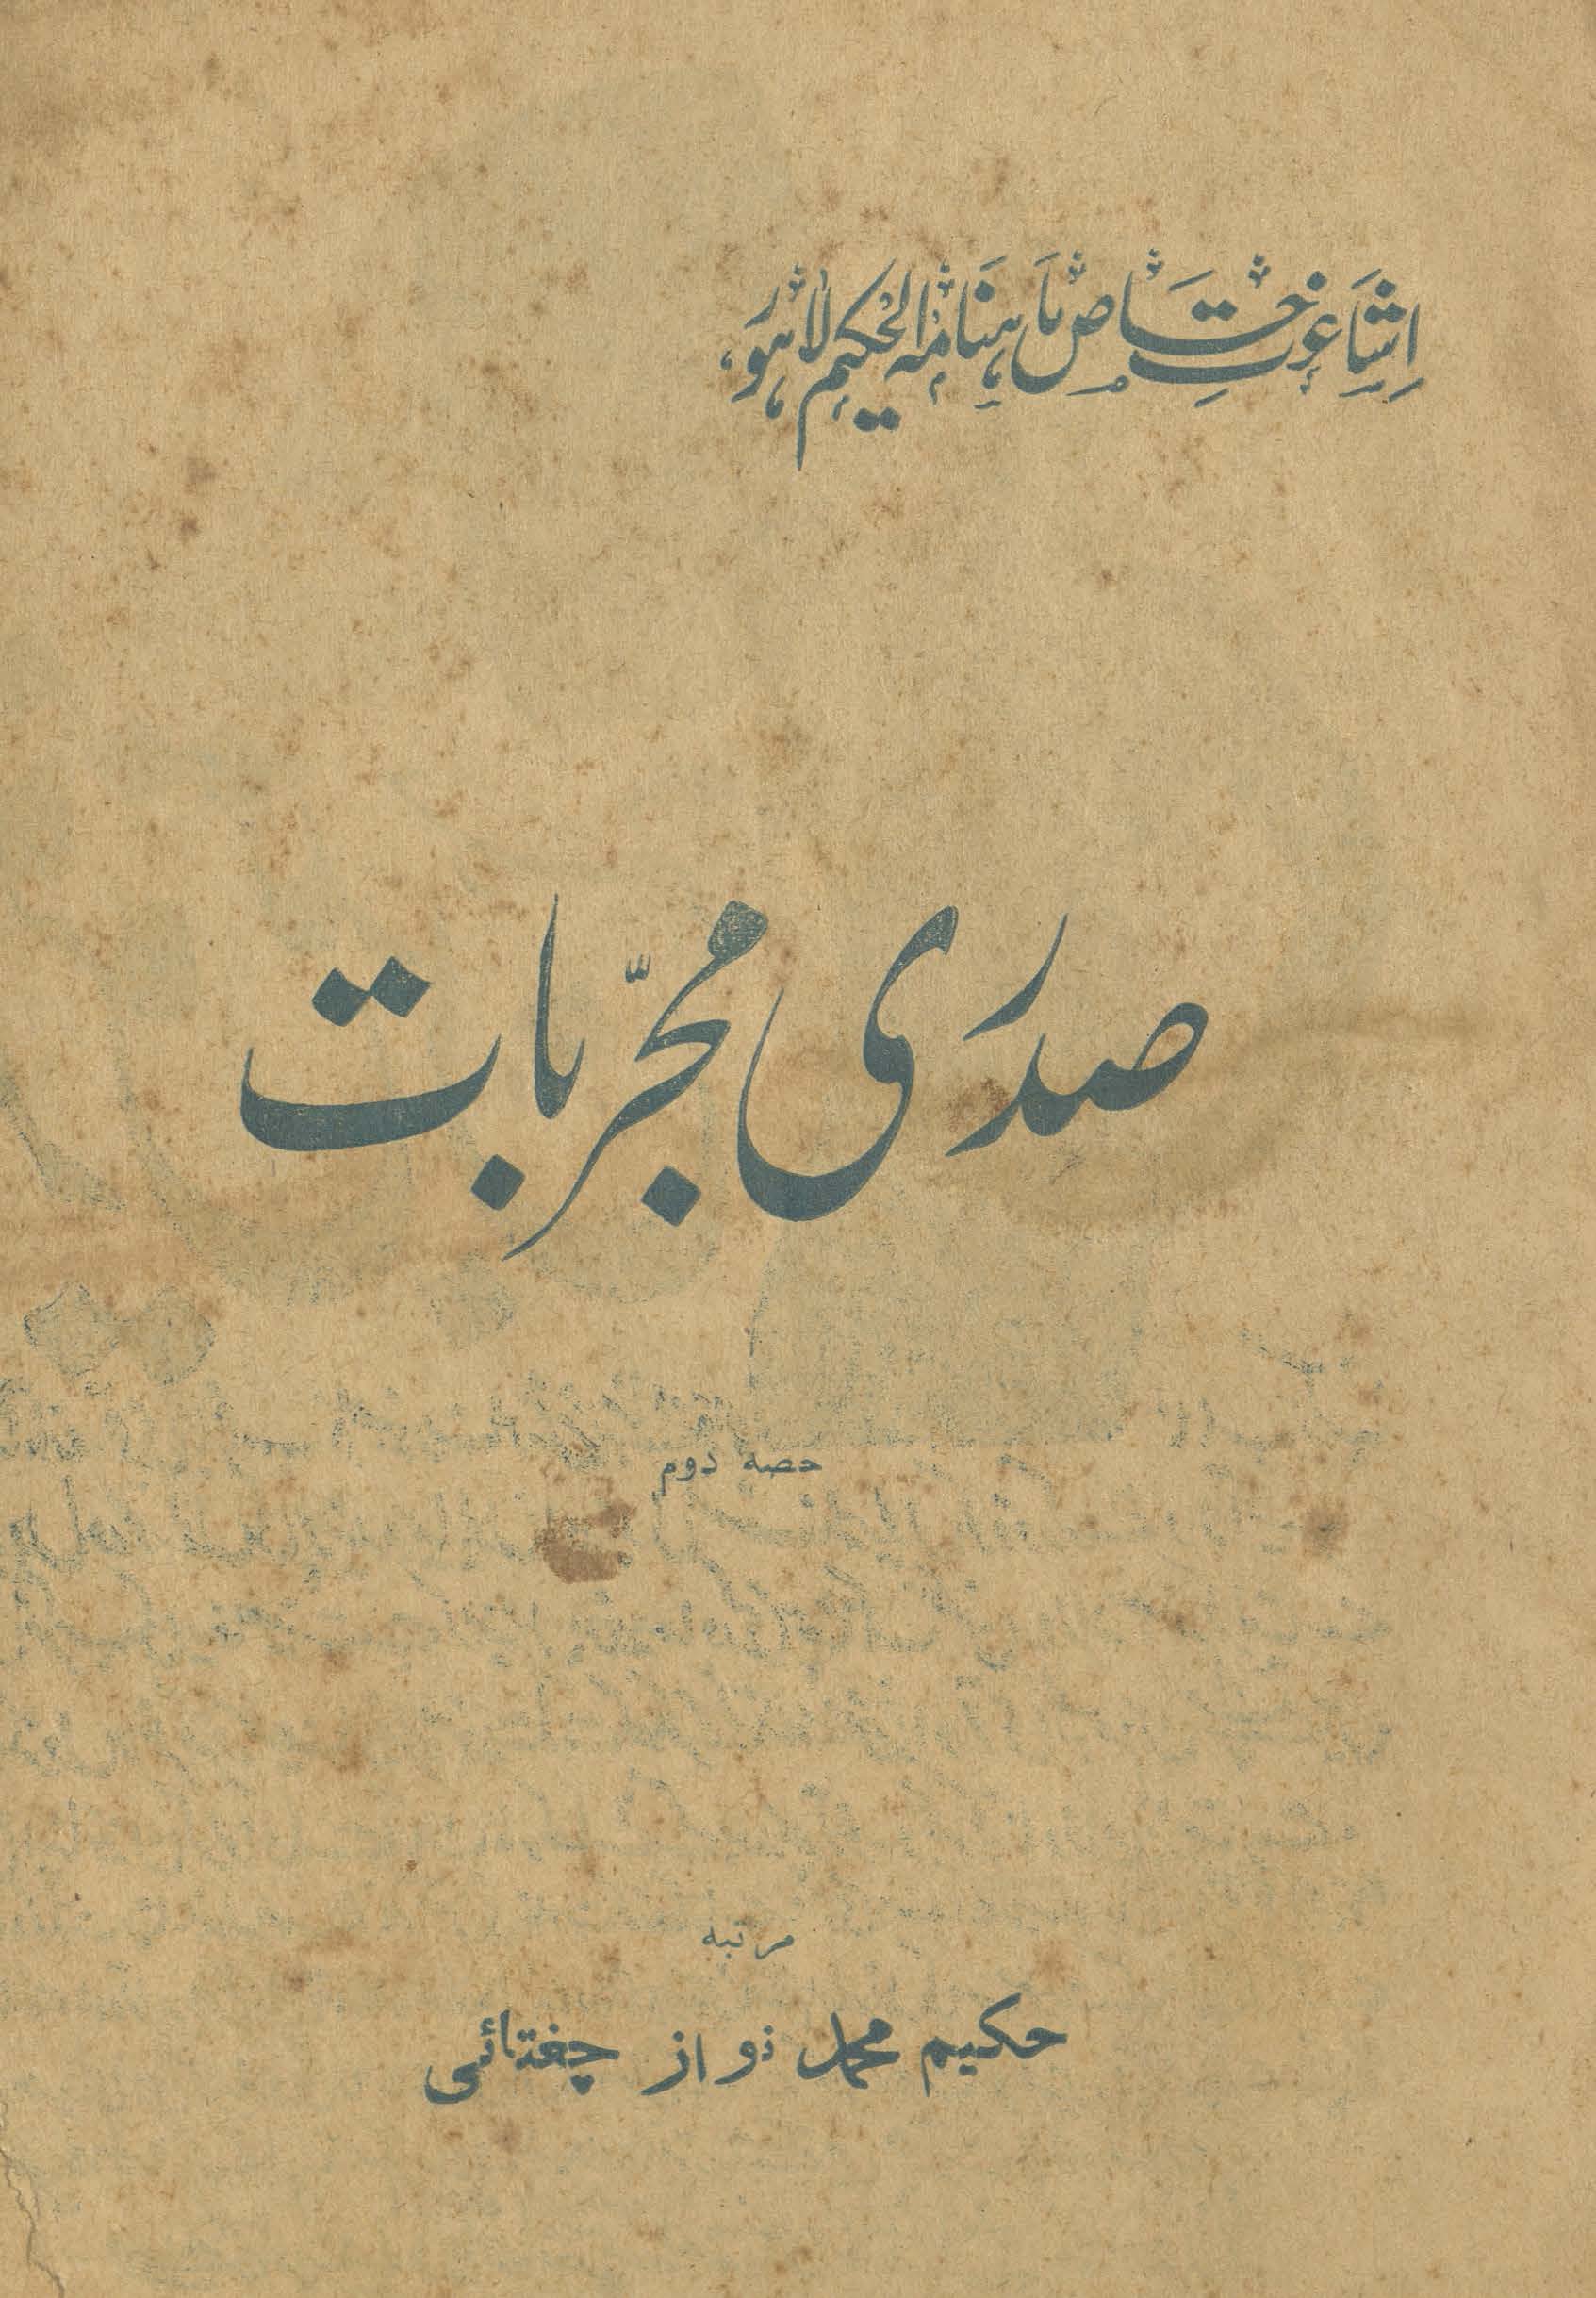 اِشَاعَتِ خَاص مَاہنَامہ الحکیم لاہور
صدری مجرّبات
حصہ دوم
مرتبہ
حکیم محمد نواز چغتائی